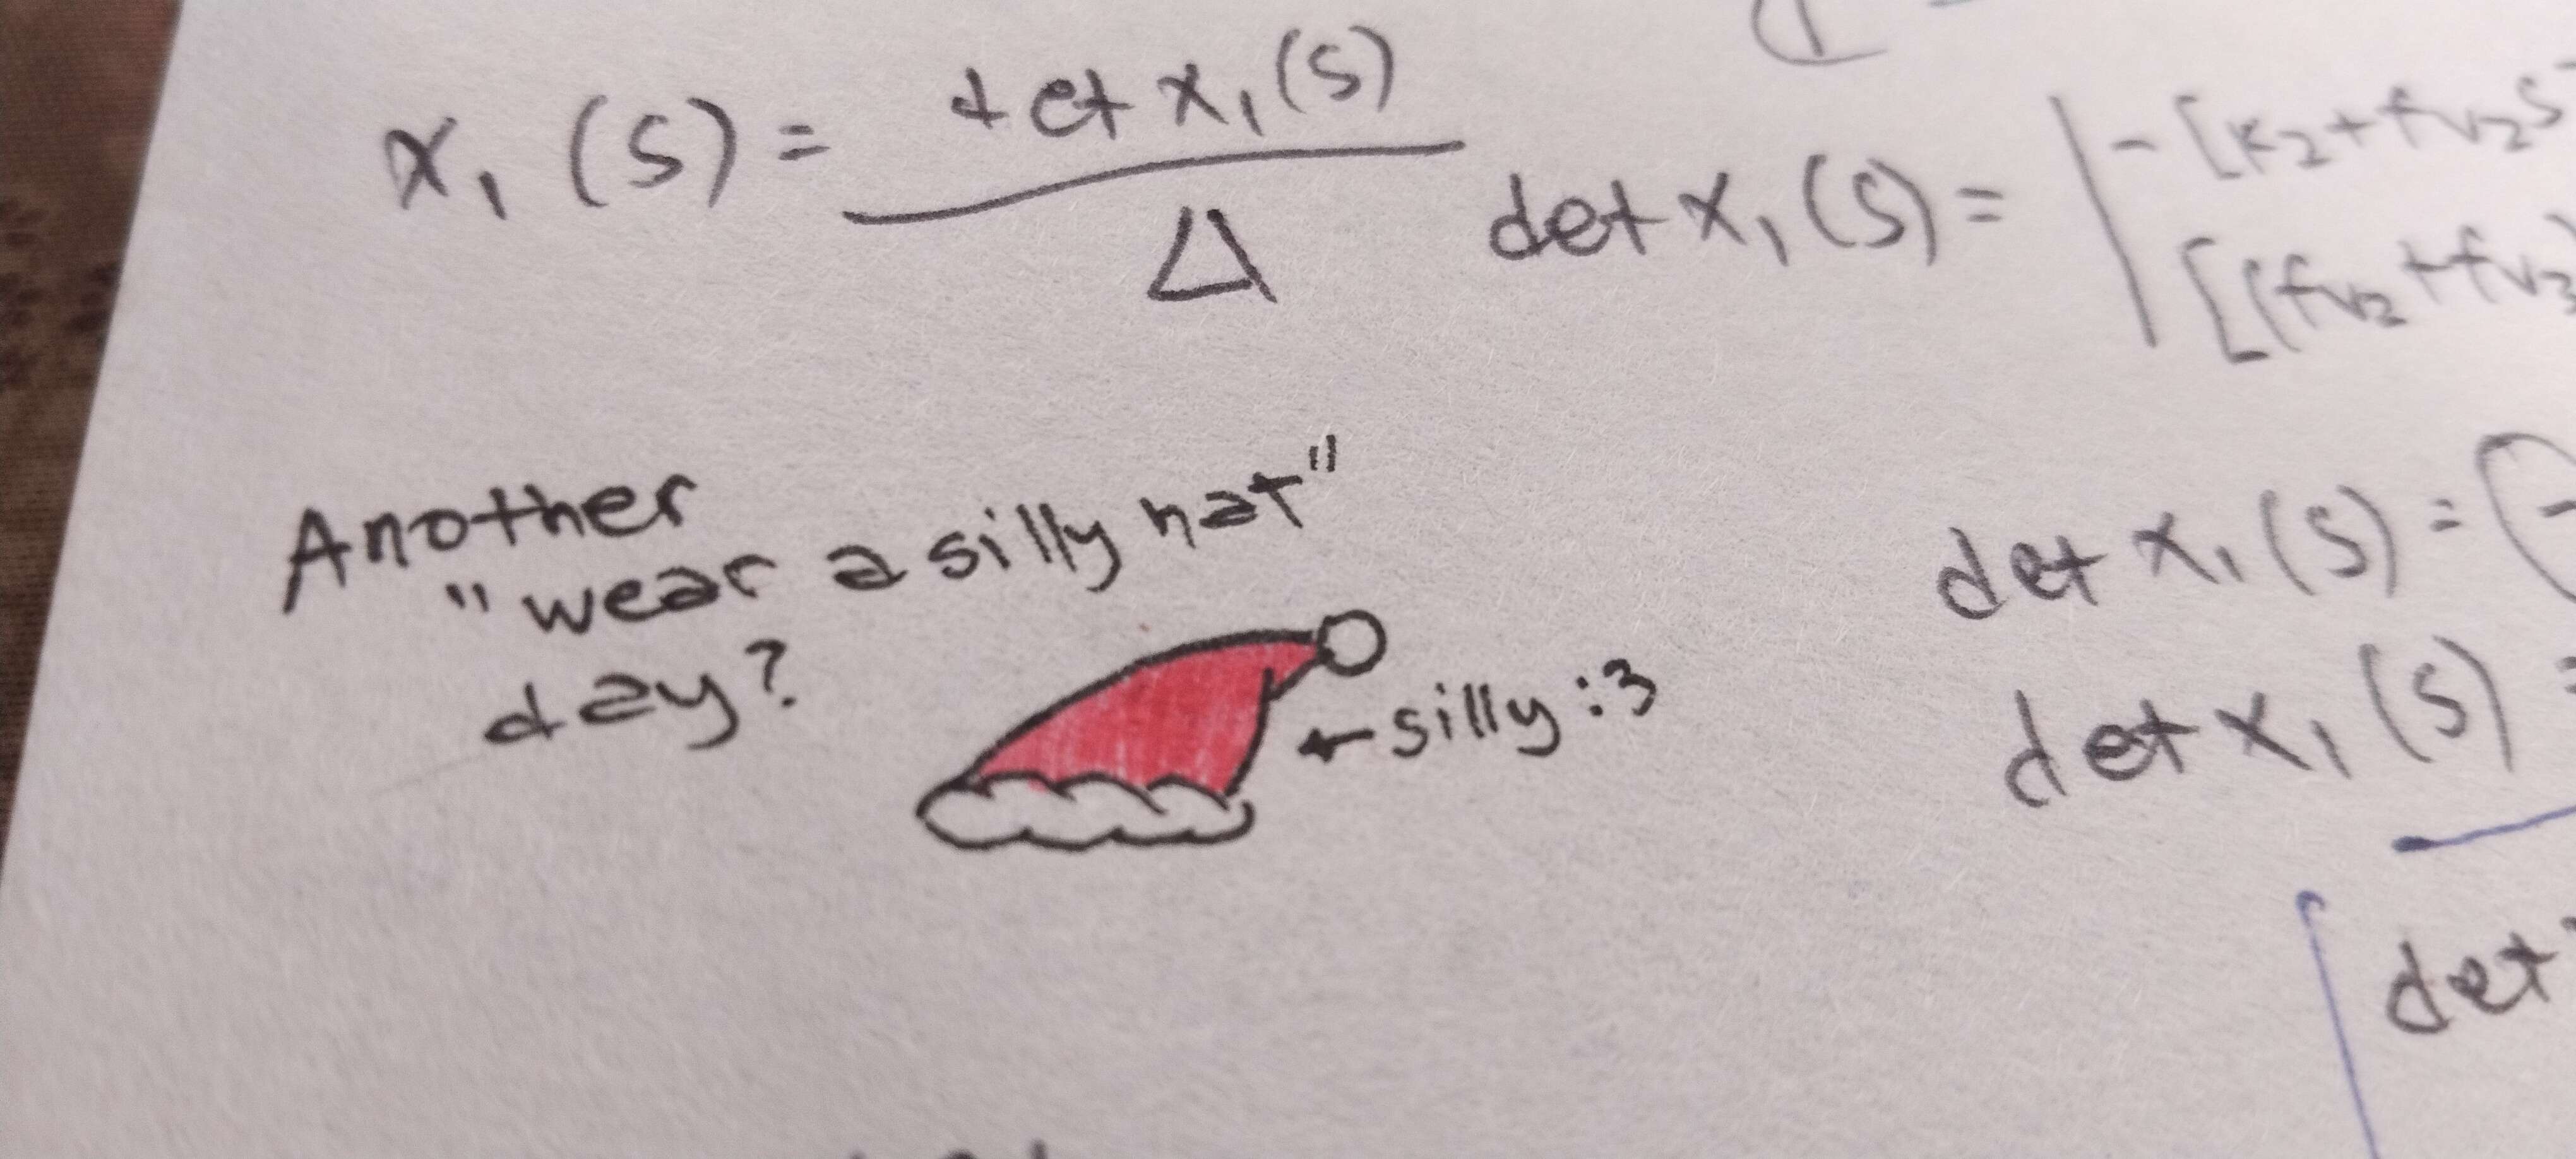 x₁ (S) = det x₁(S) / Δ
det x₁ (S) = | -[K₂+fv₂S
[(fv₂+fv₃)
Another
"wear a silly hat"
day?
←silly :3
det x₁ (S) = (-
det x₁ (S) =
det